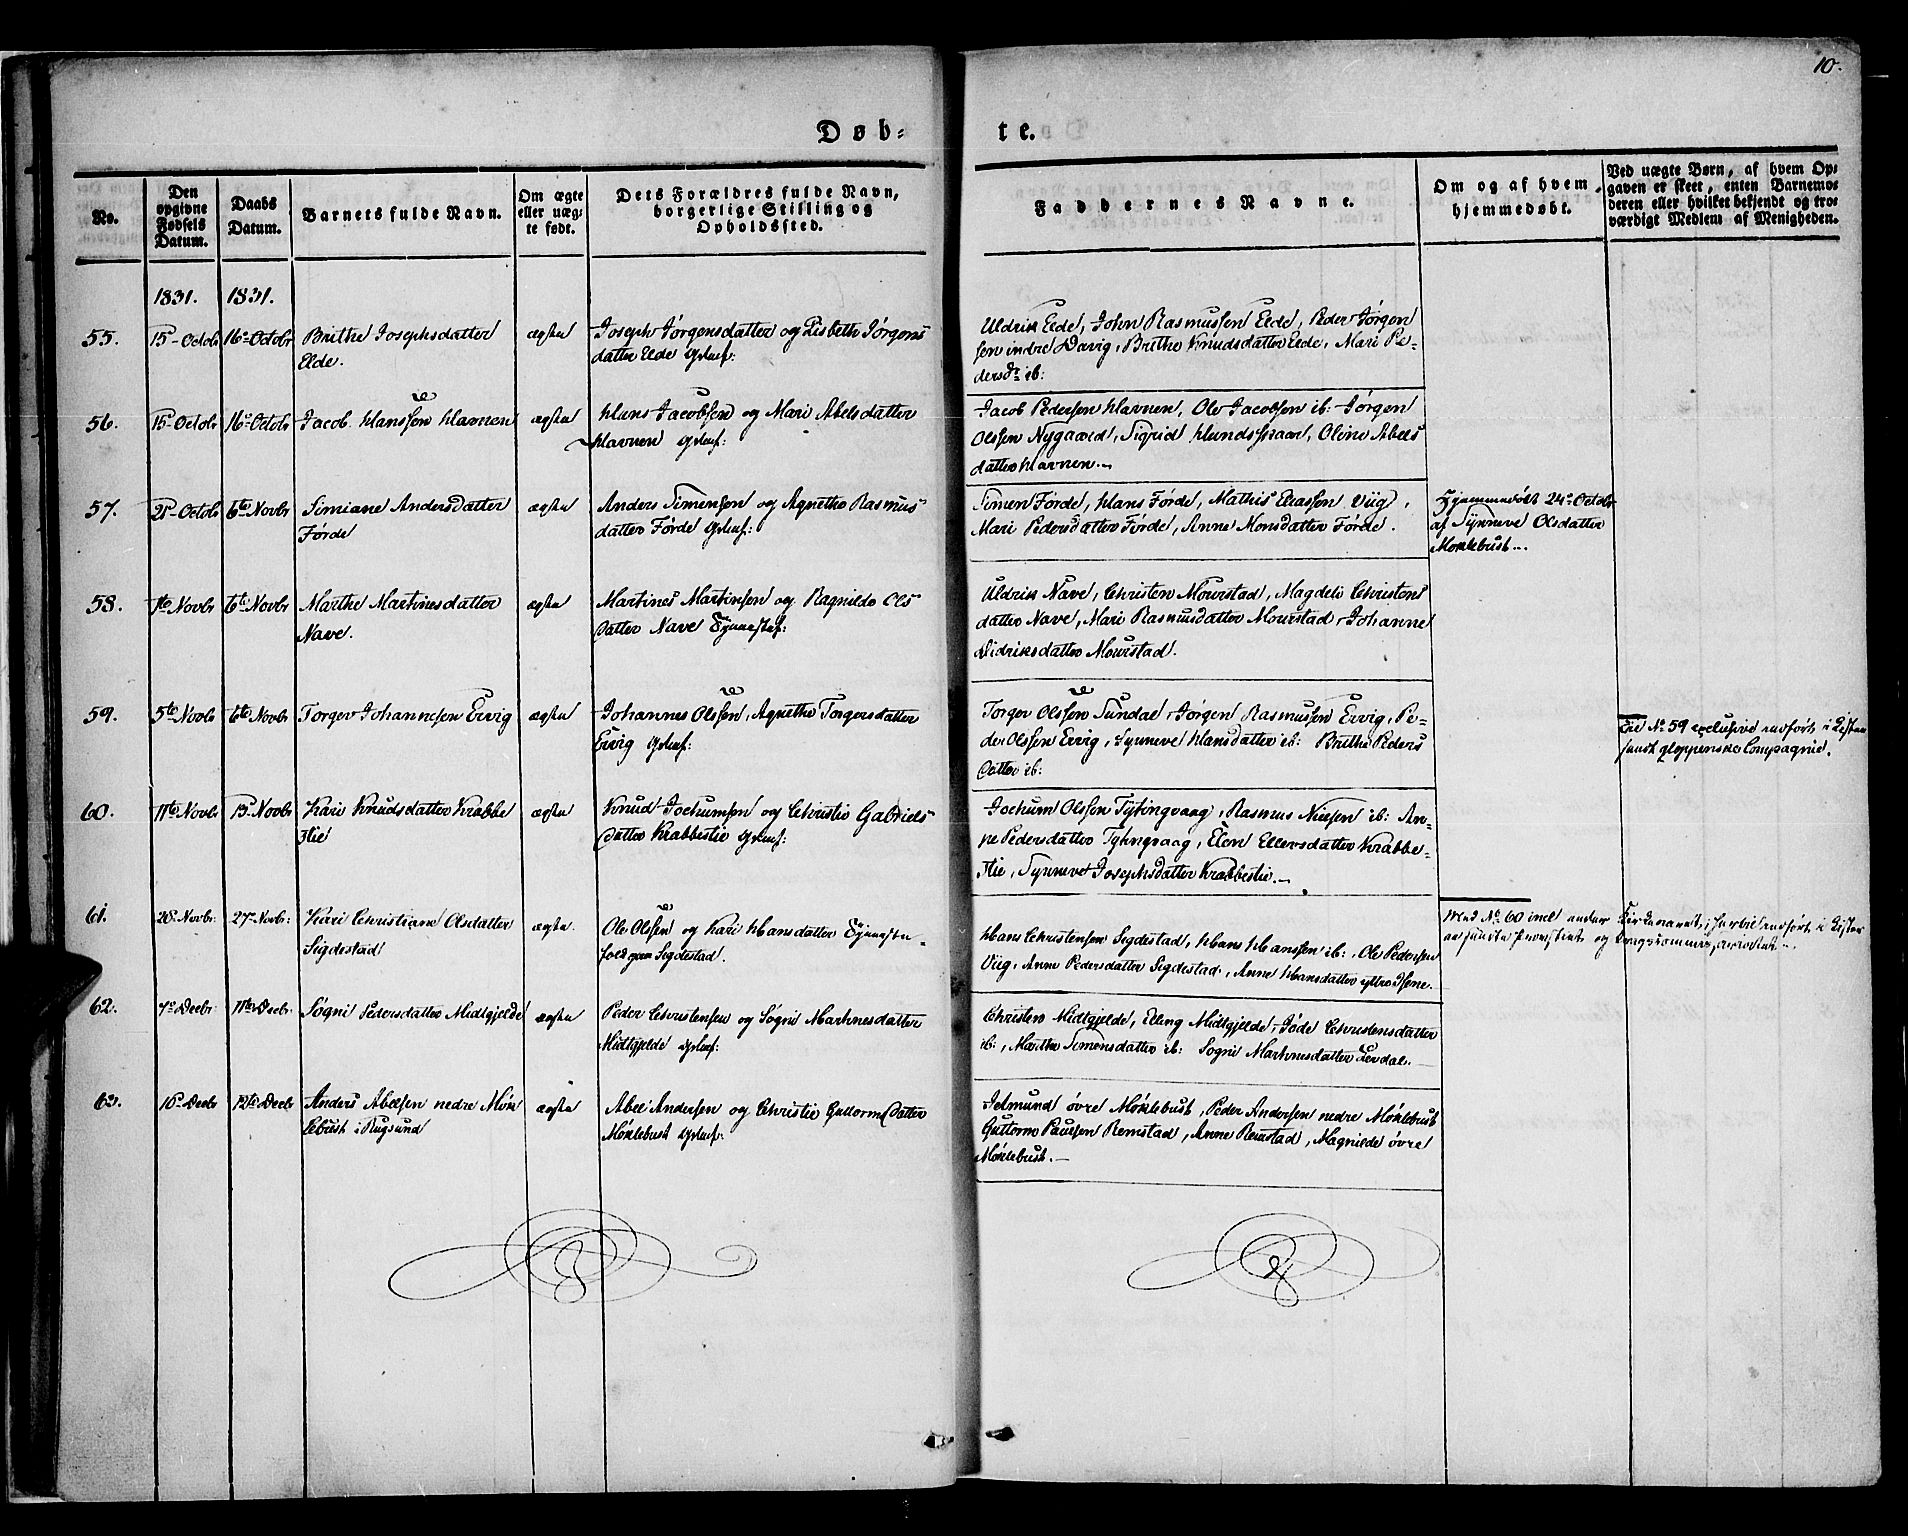 10.
Døb-
te.
No.
Den opgivne Fødsels Datum.
Daabs Datum.
Barnets fulde Navn.
Om ægte eller uægte født.
Dets Forældres fulde Navn, borgerlige Stilling og Opholdssted.
Faddernes Navne.
Om og af hvem hjemmedøbt.
Ved uægte Børn, af hvem Opgaven er skeet, enten Barnemoderen eller hvilket bekjendt og troværdigt Medlem af Menigheden.
1831. 1831.
55. 15 Octob 16 Octobr Brithe Josephsdatter
Elde.
ægte
Joseph Jørgensdatter og Lisbeth Jørgens
datter Elde
Uldrik Elde, John Rasmussen Elde, Peder Jørgen
sen indre Davig, Brithe Knudsdatter Elde, Mari Pe-
dersdr ib:
56. 15 Octob 16 Octob Jacob Hanssen Havnen
ægte
Hans Jacobsen og Mari Abelsdatter
Havnen
Jacob Pedersen Havnen, Ole Jacobsen ib: Jørgen
Olssen Nygaard, Sigrid Hundskaar, Oline Abels
datter Havnen.
57. 21 Octob 6te Novbr Simiane Andersdatter
Førde
ægte
Anders Simensen og Agnethe Rasmus
datter Førde
Simen Førde, Hans Førde, Mathis Eliassen Viig,
Mari Pedersdatter Førde, Anne Monsdatter Førde.
Hjemmedøbt 24 Octobr
af Synneve Olsdatter
Moklebust.
58. 1te Novbr 6te Novbr Marthe Martinesdatter
Nave.
ægte
Martines Martinsen og Ragnilde Ols
datter Nave
Uldrik Nave, Christen Mourstad, Magdeli Christens
datter Nave, Mari Rasmusdatter Mourstad, Johanne
Didriksdatter Mourstad.
59. 5te Novb 6te Novbr Torger Johannesen Ervig
ægte
Johannes Olssen, Agnethe Torgersdatter
Ervig
Torger Olssen Sundal, Jørgen Rasmussen Ervig, Pe-
der Olssen Ervig, Synneve Hansdatter ib: Brithe Peders
datter ib:
Til No 59 exclusive indført i Listen
gloppenske Compagnie.
60. 11te Novbr 13 Novbr Kari Knudsdatter Krabbe
stie
ægte
Knud Jochumsen og Christie Gabriels
datter Krabbestie
Jochum Olssen Tytingvaag, Rasmus Nielsen ib: An-
ne Pedersdatter Tytingvaag, Elen Ellersdatter Krabbe-
stie, Synneve Josephsdatter Krabbestie.
61. 26 Novbr 27 Novbr: Kari Christiane Olsdatter
Sigdestad
ægte.
Ole Olssen og Kari Hansdatter
Sigdestad.
Hans Christensen Sigdestad, Hans Hanssen ib:, Ole Pedersen
Viig, Anne Pedersdatter Sigdestad, Anne Hansdatter yttre
Med No 60 incl
og
62. 7 Decbr 11te Decbr Søgni Pedersdatter Midtgjelde
ægte
Peder Christensen og Søgni Martinesdatter
Midtgjelde
Christen Midtgjelde, Elling Midtgjelde, Christensdatter
ib:, Marthe Simonsdatter ib: Sogni Martinesdatter
63. 10 Decbr Decbr Anders Abelsen nedre Møk
lebust i Rugsund
ægte
Abel Andersen og Christie Guttormsdatter
Møklebust
øvre Møklebust, Peder Andersen nedre Møklebust
Guttorm Paulsen Remstad, Anne Remstad, Magnilde øvre
Møklebust.